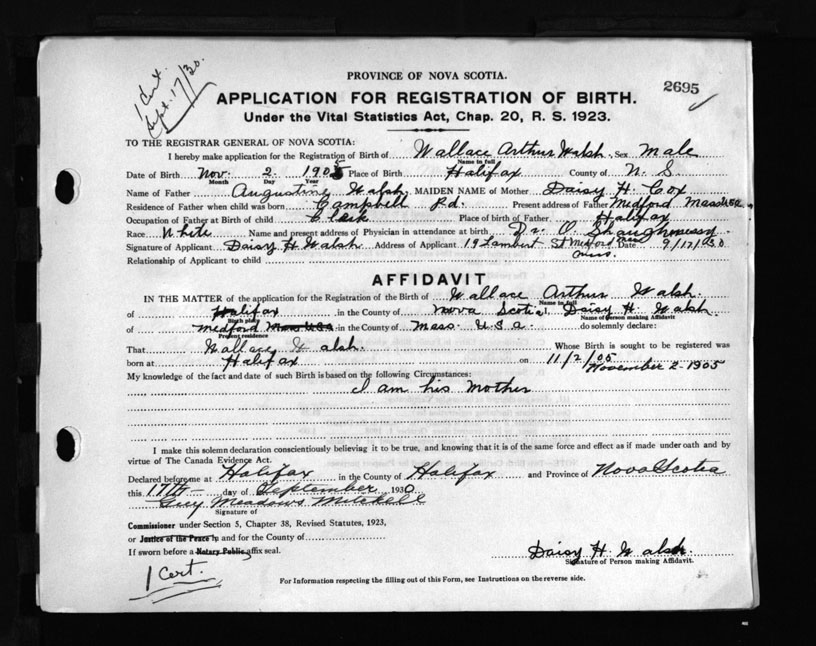 1 Cert.
Sept. 17/30.
PROVINCE OF NOVA SCOTIA.
2695
APPLICATION FOR REGISTRATION OF BIRTH.
Under the Vital Statistics Act, Chap. 20, R. S. 1923.
TO THE REGISTRAR GENERAL OF NOVA SCOTIA:
I hereby make application for the Registration of Birth of Wallace Arthur Walsh. Sex male
Name in full
Date of Birth Nov. 2 1905 Place of Birth Halifax County of N. S.
Month Day Year
Name of Father Augustine Walsh. MAIDEN NAME of Mother Daisy H. Cox
Residence of Father when child was born Campbell Rd. Present address of Father Medford Mass USA
Occupation of Father at Birth of child Clerk Place of birth of Father Halifax
Race White Name and present address of Physician in attendance at birth Dr. O. Shaughnessy.
Signature of Applicant Daisy H. Walsh Address of Applicant 19 Lambert St Medford Mass Date 9/17/30
Relationship of Applicant to child
AFFIDAVIT
IN THE MATTER of the application for the Registration of the Birth of Wallace Arthur Walsh.
Name in full
of Halifax in the County of Nova Scotia, Daisy H. Walsh.
Birth place Name of Person making Affidavit
of Medford Mass USA in the County of Mass. U.S.A. do solemnly declare:
Present residence
That Wallace Walsh. Whose Birth is sought to be registered was
born at Halifax on 11/2/05
November 2-1905
My knowledge of the fact and date of such Birth is based on the following Circumstances:
I am his mother
I make this solemn declaration conscientiously believing it to be true, and knowing that it is of the same force and effect as if made under oath and by
virtue of The Canada Evidence Act.
Declared before me at Halifax in the County of Halifax and Province of Nova Scotia
this 17th day of September 1930
Guy Meadows Mitchell
Signature of
Commissioner under Section 5, Chapter 38, Revised Statutes, 1923,
or Justice of the Peace in and for the County of
If sworn before a Notary Public, affix seal.
Daisy H. Walsh.
Signature of Person making Affidavit.
1 Cert.
For Information respecting the filling out of this Form, see Instructions on the reverse side.